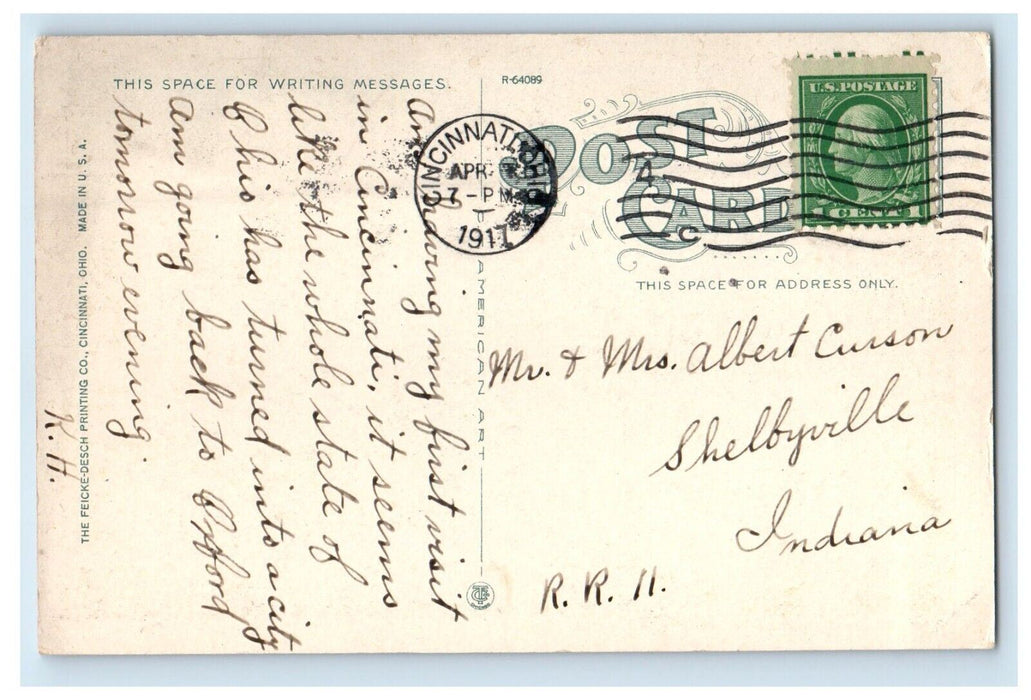 THIS SPACE FOR WRITING MESSAGES.
Am paying my first visit
in Cincinnati, it seems
like the whole state of
Ohio has turned into a city
Am going back to Oxford
tomorrow evening.
K. H.
THE FEICKE-DESCH PRINTING CO., CINCINNATI, OHIO. MADE IN U. S. A.
R-64089
AMERICAN ART
CINCINNATI, OHIO
APR
7 - PM
1917
POST
CARD
4
U.S. POSTAGE
1 CENT 1
THIS SPACE FOR ADDRESS ONLY.
Mr. & Mrs. Albert Curson
Shelbyville
Indiana
R. R. 11.